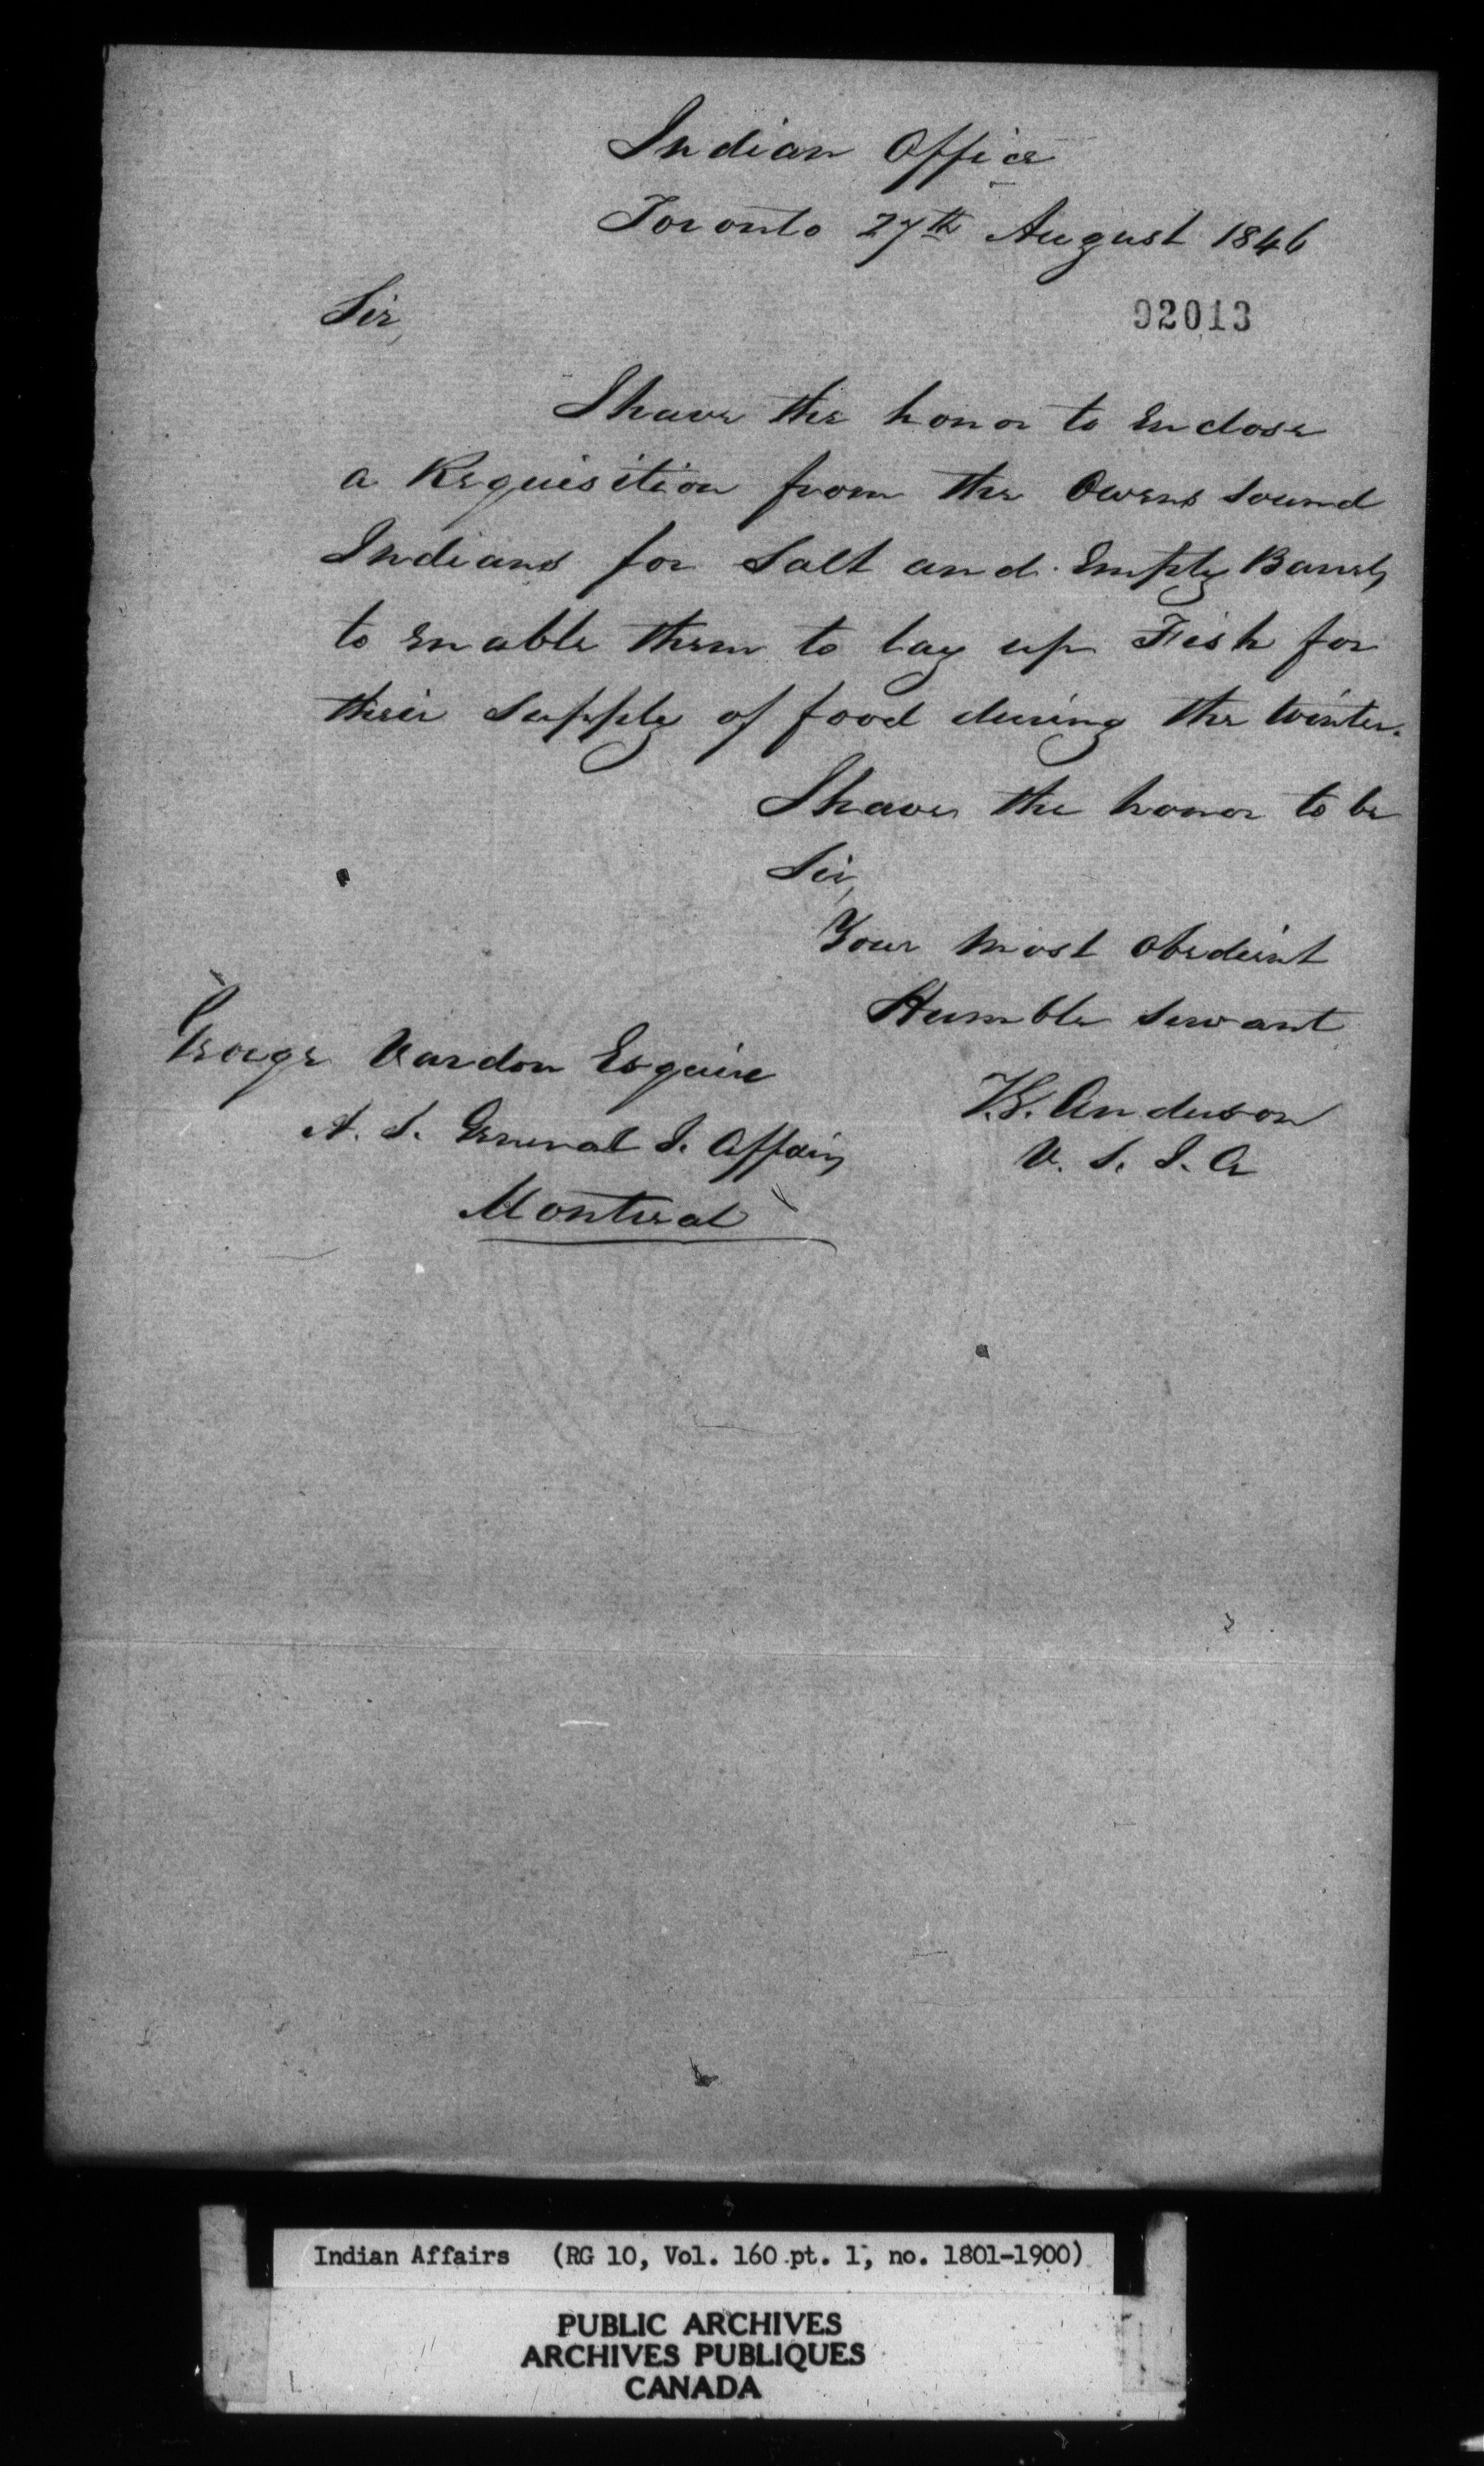 Indian Office
Toronto 27th August 1846
Sir,
92013
I have the honor to Enclose
a Requisition from the Owens Sound
Indians for Salt and Empty Barrels
to enable them to lay up Fish for
their supply of food during the Winter.
I have the honor to be
Sir,
Your Most Obedient
Humble Servant
T.G. Anderson
V. S. I. A
George Vardon Esquire
A. S. General I. Affairs
Montreal
Indian Affairs (RG 10, Vol. 160 pt. 1, no. 1801-1900)
PUBLIC ARCHIVES
ARCHIVES PUBLIQUES
CANADA